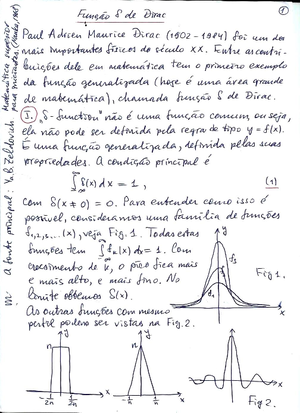 Função δ de Dirac
①
Paul Adrien Maurice Dirac (1902-1984) foi um dos
mais importantes físicos do século XX. Entre as contri-
buições dele em matemática tem o primeiro exemplo
da função generalizada (hoje é uma área grande
de matemática), chamada função δ de Dirac.
I. "δ-function" não é uma função comum, ou seja,
ela não pode ser definida pela regra do tipo y = f(x).
É uma função generalizada, definida pelas suas
propriedades. A condição principal é
∫ δ(x) dx = 1 , (1)
com δ(x ≠ 0) = 0. Para entender como isso é
possível, consideramos uma família de funções
f₁,₂,₃,...(x), veja Fig. 1. Todas estas
funções tem ∫ fₙ(x) dx = 1. Com
crescimento de n, o pico fica mais
e mais alto, e mais fino. No
limite obtemos δ(x).
As outras funções com mesmo
perfil podem ser vistas na Fig. 2.
y
f₃
f₁
x
Fig 1.
y
n
-1/2n
1/2n
x
y
n
-1/n
1/n
x
y
x
Fig 2.
A fonte principal: Ya.B. Zeldovich
Matemática superior
para iniciantes